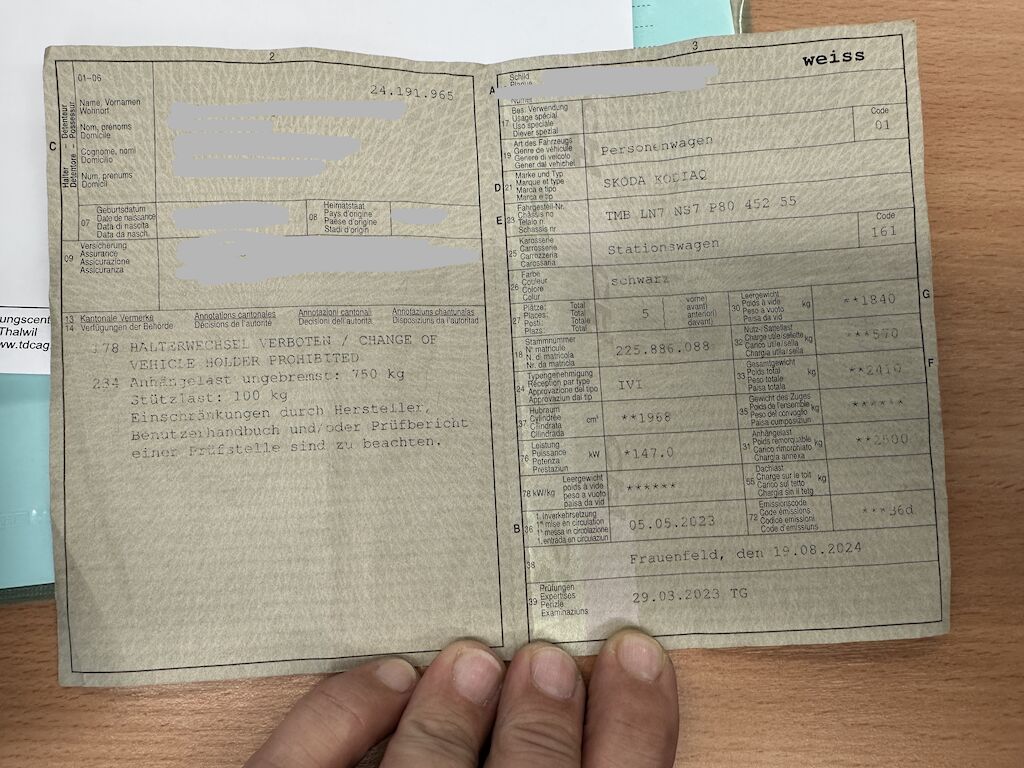 2
01-06
24.191.965
C
Halter – Détenteur
Detentore – Possessur
Name, Vornamen
Wohnort
Nom, prénoms
Domicile
Cognome, nomi
Domicilio
Num, prenums
Domicil
07
Geburtsdatum
Date de naissance
Data di nascita
Data da nasch.
08
Heimatstaat
Pays d'origine
Paese d'origine
Stadi d'origin
09
Versicherung
Assurance
Assicurazione
Assicuranza
13 Kantonale Vermerke Annotations cantonales Annotazioni cantonali Annotaziuns chantunalas
14 Verfügungen der Behörde Décisions de l'autorité Decisioni dell'autorità Disposiziuns da l'autoritad
178 HALTERWECHSEL VERBOTEN / CHANGE OF
VEHICLE HOLDER PROHIBITED
234 Anhängelast ungebremst: 750 kg
Stützlast: 100 kg
Einschränkungen durch Hersteller,
Benutzerhandbuch und/oder Prüfbericht
einer Prüfstelle sind zu beachten.
3
weiss
A
Schild
Plaque
17
Bes. Verwendung
Usage spécial
Uso speciale
Diever spezial
Code
01
19
Art des Fahrzeugs
Genre de véhicule
Genere di veicolo
Gener dal vehichel
Personenwagen
D 21
Marke und Typ
Marque et type
Marca e tipo
Marca e tip
SKODA KODIAQ
E 23
Fahrgestell-Nr.
Châssis no
Telaio n
Schassis nr
TMB LN7 NS7 P80 452 55
25
Karosserie
Carrosserie
Carrozzeria
Carossaria
Stationswagen
Code
161
26
Farbe
Couleur
Colore
Colur
schwarz
27
Plätze: Total
Places: Total
Posti: Totale
Plazs: Total
5
vorne)
avant)
anteriori)
davant)
G
30
Leergewicht
Poids à vide
Peso a vuoto
Paisa da vid
kg
**1840
18
Stammnummer
N° matricule
N. di matricola
Nr. da matricla
225.886.088
32
Nutz-/Sattellast
Charge utile/sellette
Carico utile/sella
Chargia utila/sella
kg
***570
24
Typengenehmigung
Réception par type
Approvazione del tipo
Approvaziun dal tip
IVI
F
33
Gesamtgewicht
Poids total
Peso totale
Paisa totala
kg
**2410
37
Hubraum
Cylindrée
Cilindrata
Cilindrada
cm³
**1968
35
Gewicht des Zuges
Poids de l'ensemble
Peso del convoglio
Paisa cumposiziun
kg
******
76
Leistung
Puissance
Potenza
Prestaziun
kW
*147.0
31
Anhängelast
Poids remorquable
Carico rimorchiato
Chargia annexa
kg
**2500
78 kW/kg
Leergewicht
poids à vide
peso a vuoto
paisa da vid
******
55
Dachlast
Charge sur le toit
Carico sul tetto
Chargia sin il tetg
kg
B 36
1. Inverkehrsetzung
1re mise en circulation
1a messa in circolazione
1. entrada en circulaziun
05.05.2023
72
Emissionscode
Code émissions
Codice emissioni
Code d'emissiuns
***36d
38
Frauenfeld, den 19.08.2024
39
Prüfungen
Expertises
Perizie
Examinaziuns
29.03.2023 TG
ungscent
Thalwil
w.tdcag.